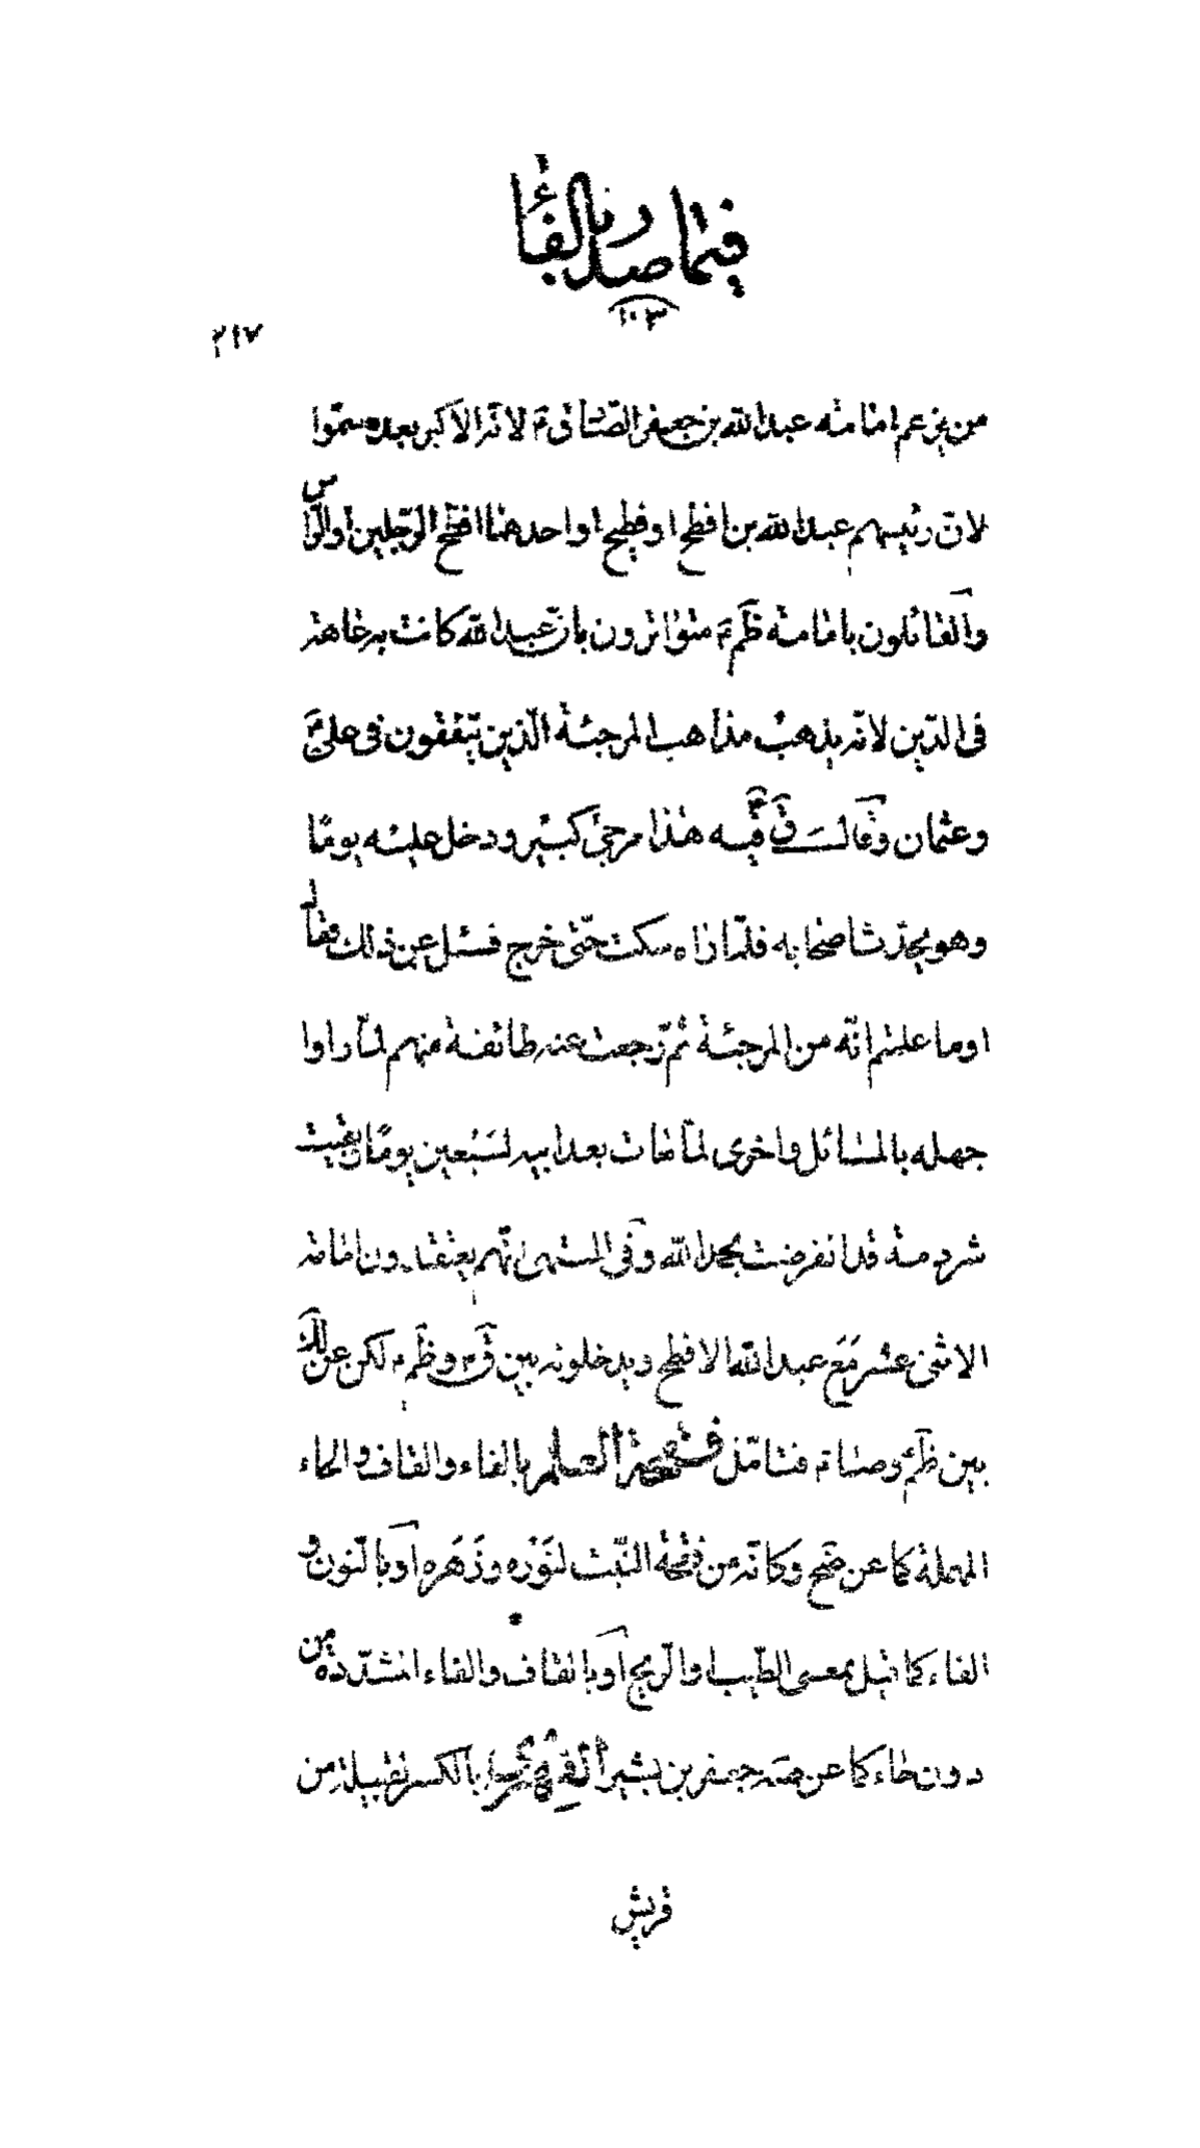 فيما صدر بالفاء
١٠٣
٢١٧
من يزعم امامته عبد الله بن جعفر الصّادق ع لانّه الاكبر بعده سمّوا
لانّ رئيسهم عبد الله بن افطح او فطيح او احدهما افطح الرّجلين او الرّاس
والقائلون بامامته ظم ع متواترون بانّ عبد الله كانت به عاهة
فى الدّين لانّه يذهب مذاهب المرجئة الّذين يقفون فى علىّ ع
وعثمان وقال ق ع فيه هذا مرجئ كبير ودخل عليه يومًا
وهو يحدّث اصحابه فلمّا راه سكت حتّى خرج فسئل عن ذلك فقال
اوما علمتم انّه من المرجئة ثمّ رجعت عنه طائفة منهم لمّا راوا
جهله بالمسائل واخرى لمّا مات بعد ابيه لسبعين يومًا وبقيت
شرذمة قد انقرضت بحمد الله وفى المشتهر انّهم يعتقدون امامة
الاثنى عشر مع عبد الله الافطح ويدخلونه بين ق ع و ظم ع لكن عن لك
بين ظم ع وضا ع فتامّل فقحة العلم بالفاء والقاف والحاء
المهملة كما عن ضح وكانّه من فقحة النّبت لنَوْره وزَهَره او بالنّون و
الفاء كما قيل بمعنى الطّيب والرّيح او بالقاف والفاء المشدّدة من
دون طاء كما عن صه جعفر بن بشير الفهرى بالكسر لقبيلة من
قريش